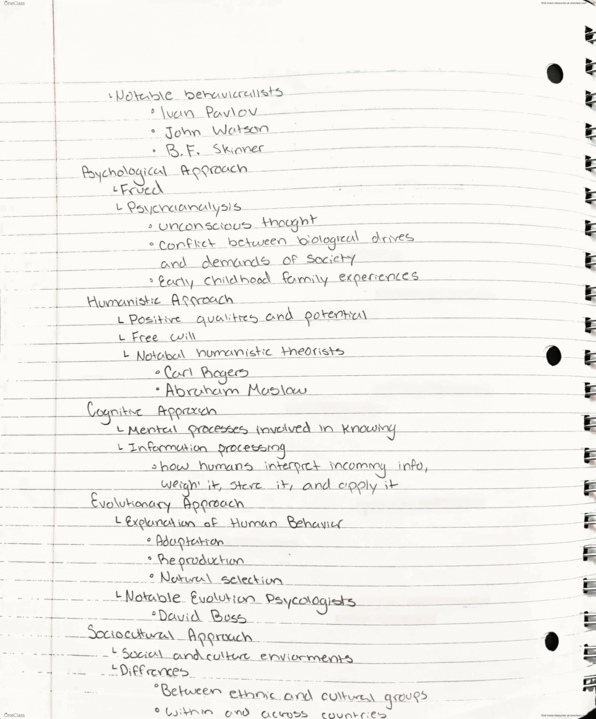 OneClass
Notable behavioralists
Ivan Pavlov
John Watson
B.F. Skinner
Psychological Approach
Frued
Psychoanalysis
unconscious thought
Conflict between biological drives
and demands of society
Early childhood family experiences
Humanistic Approach
Positive qualities and potential
Free will
Notabal humanistic theorists
Carl Rogers
Abraham Maslow
Cognitive Approach
Mental processes involved in knowing
Information processing
how humans interpret incoming info,
weigh it, store it, and apply it
Evolutionary Approach
Explanation of Human Behavior
Adaptation
Reproduction
Natural selection
Notable Evolution Psycologists
David Buss
Sociocultural Approach
Social and culture enviorments
Diffrences
Between ethnic and cultural groups
within and across countries
OneClass